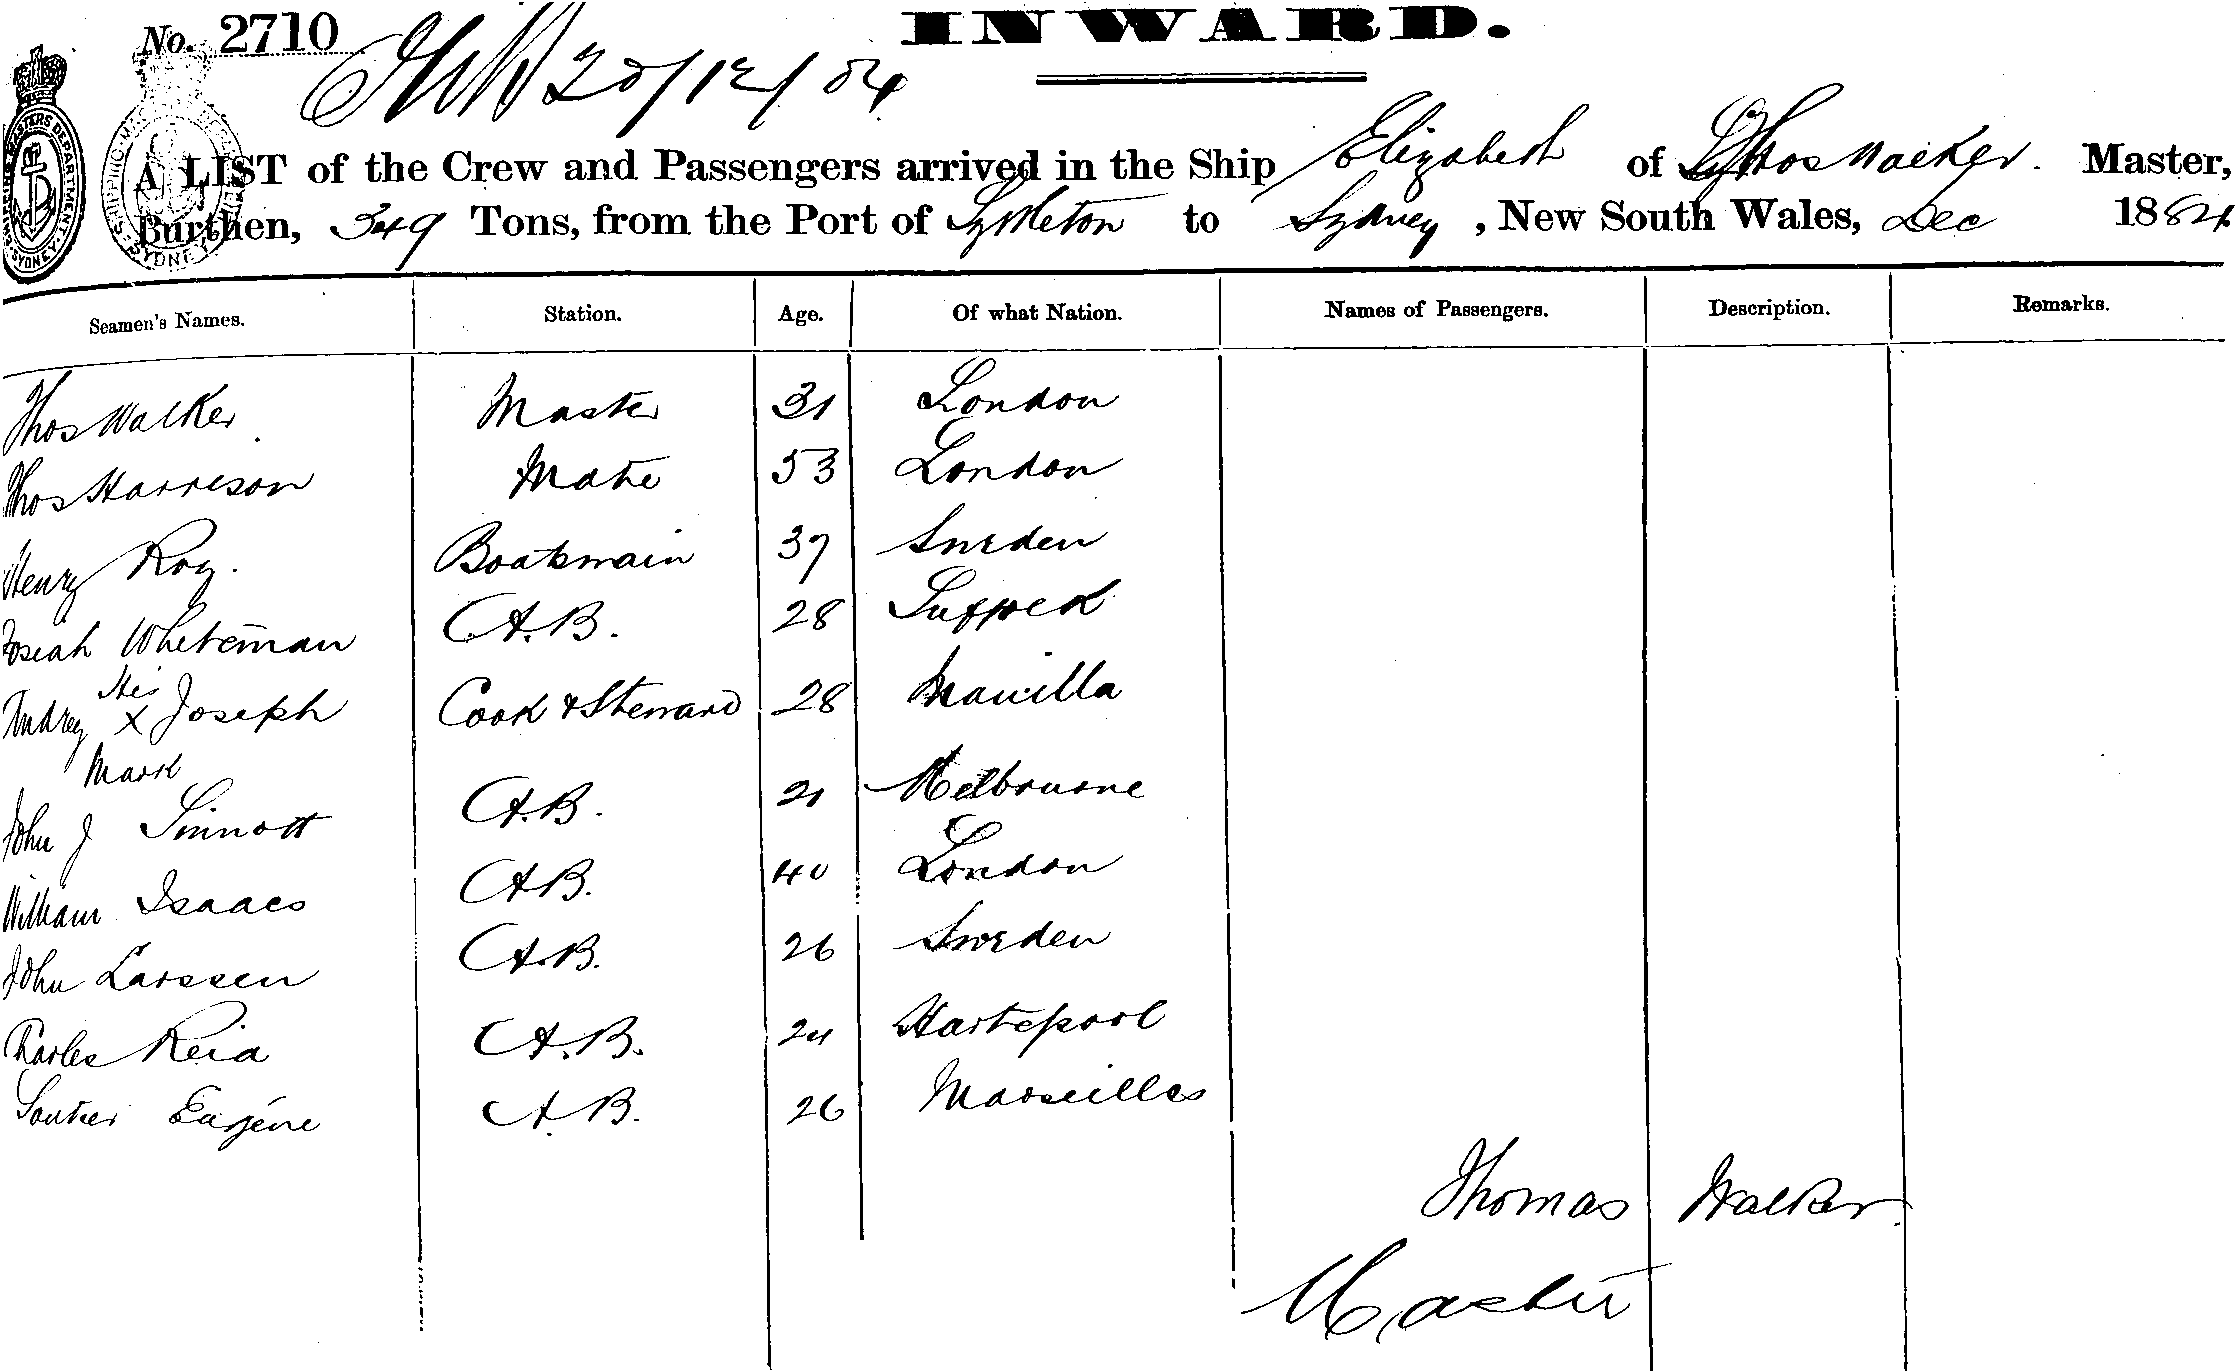 No. 2710
INWARD.
20/12/84
A LIST of the Crew and Passengers arrived in the Ship Elizabeth of Thos Walker. Master,
Burthen, 349 Tons, from the Port of Lyttleton to Sydney, New South Wales, Dec 1884
Seamen's Names. Station. Age. Of what Nation. Names of Passengers. Description. Remarks.
Thos Walker Master 31 London
Thos Harrison Mate 53 London
Henry Roy. Boatswain 37 Sweden
Josiah Whiteman A.B. 28 Suffolk
His
Andrey X Joseph Cook & Steward 28 Manilla
Mark
John J Sinnott A.B. 21 Melbourne
William Isaacs A.B. 40 London
John Larssen A.B. 26 Sweden
Charles Reid A.B. 24 Hartepool
Eugéne A.B. 26 Marseilles
Thomas Walker
Master